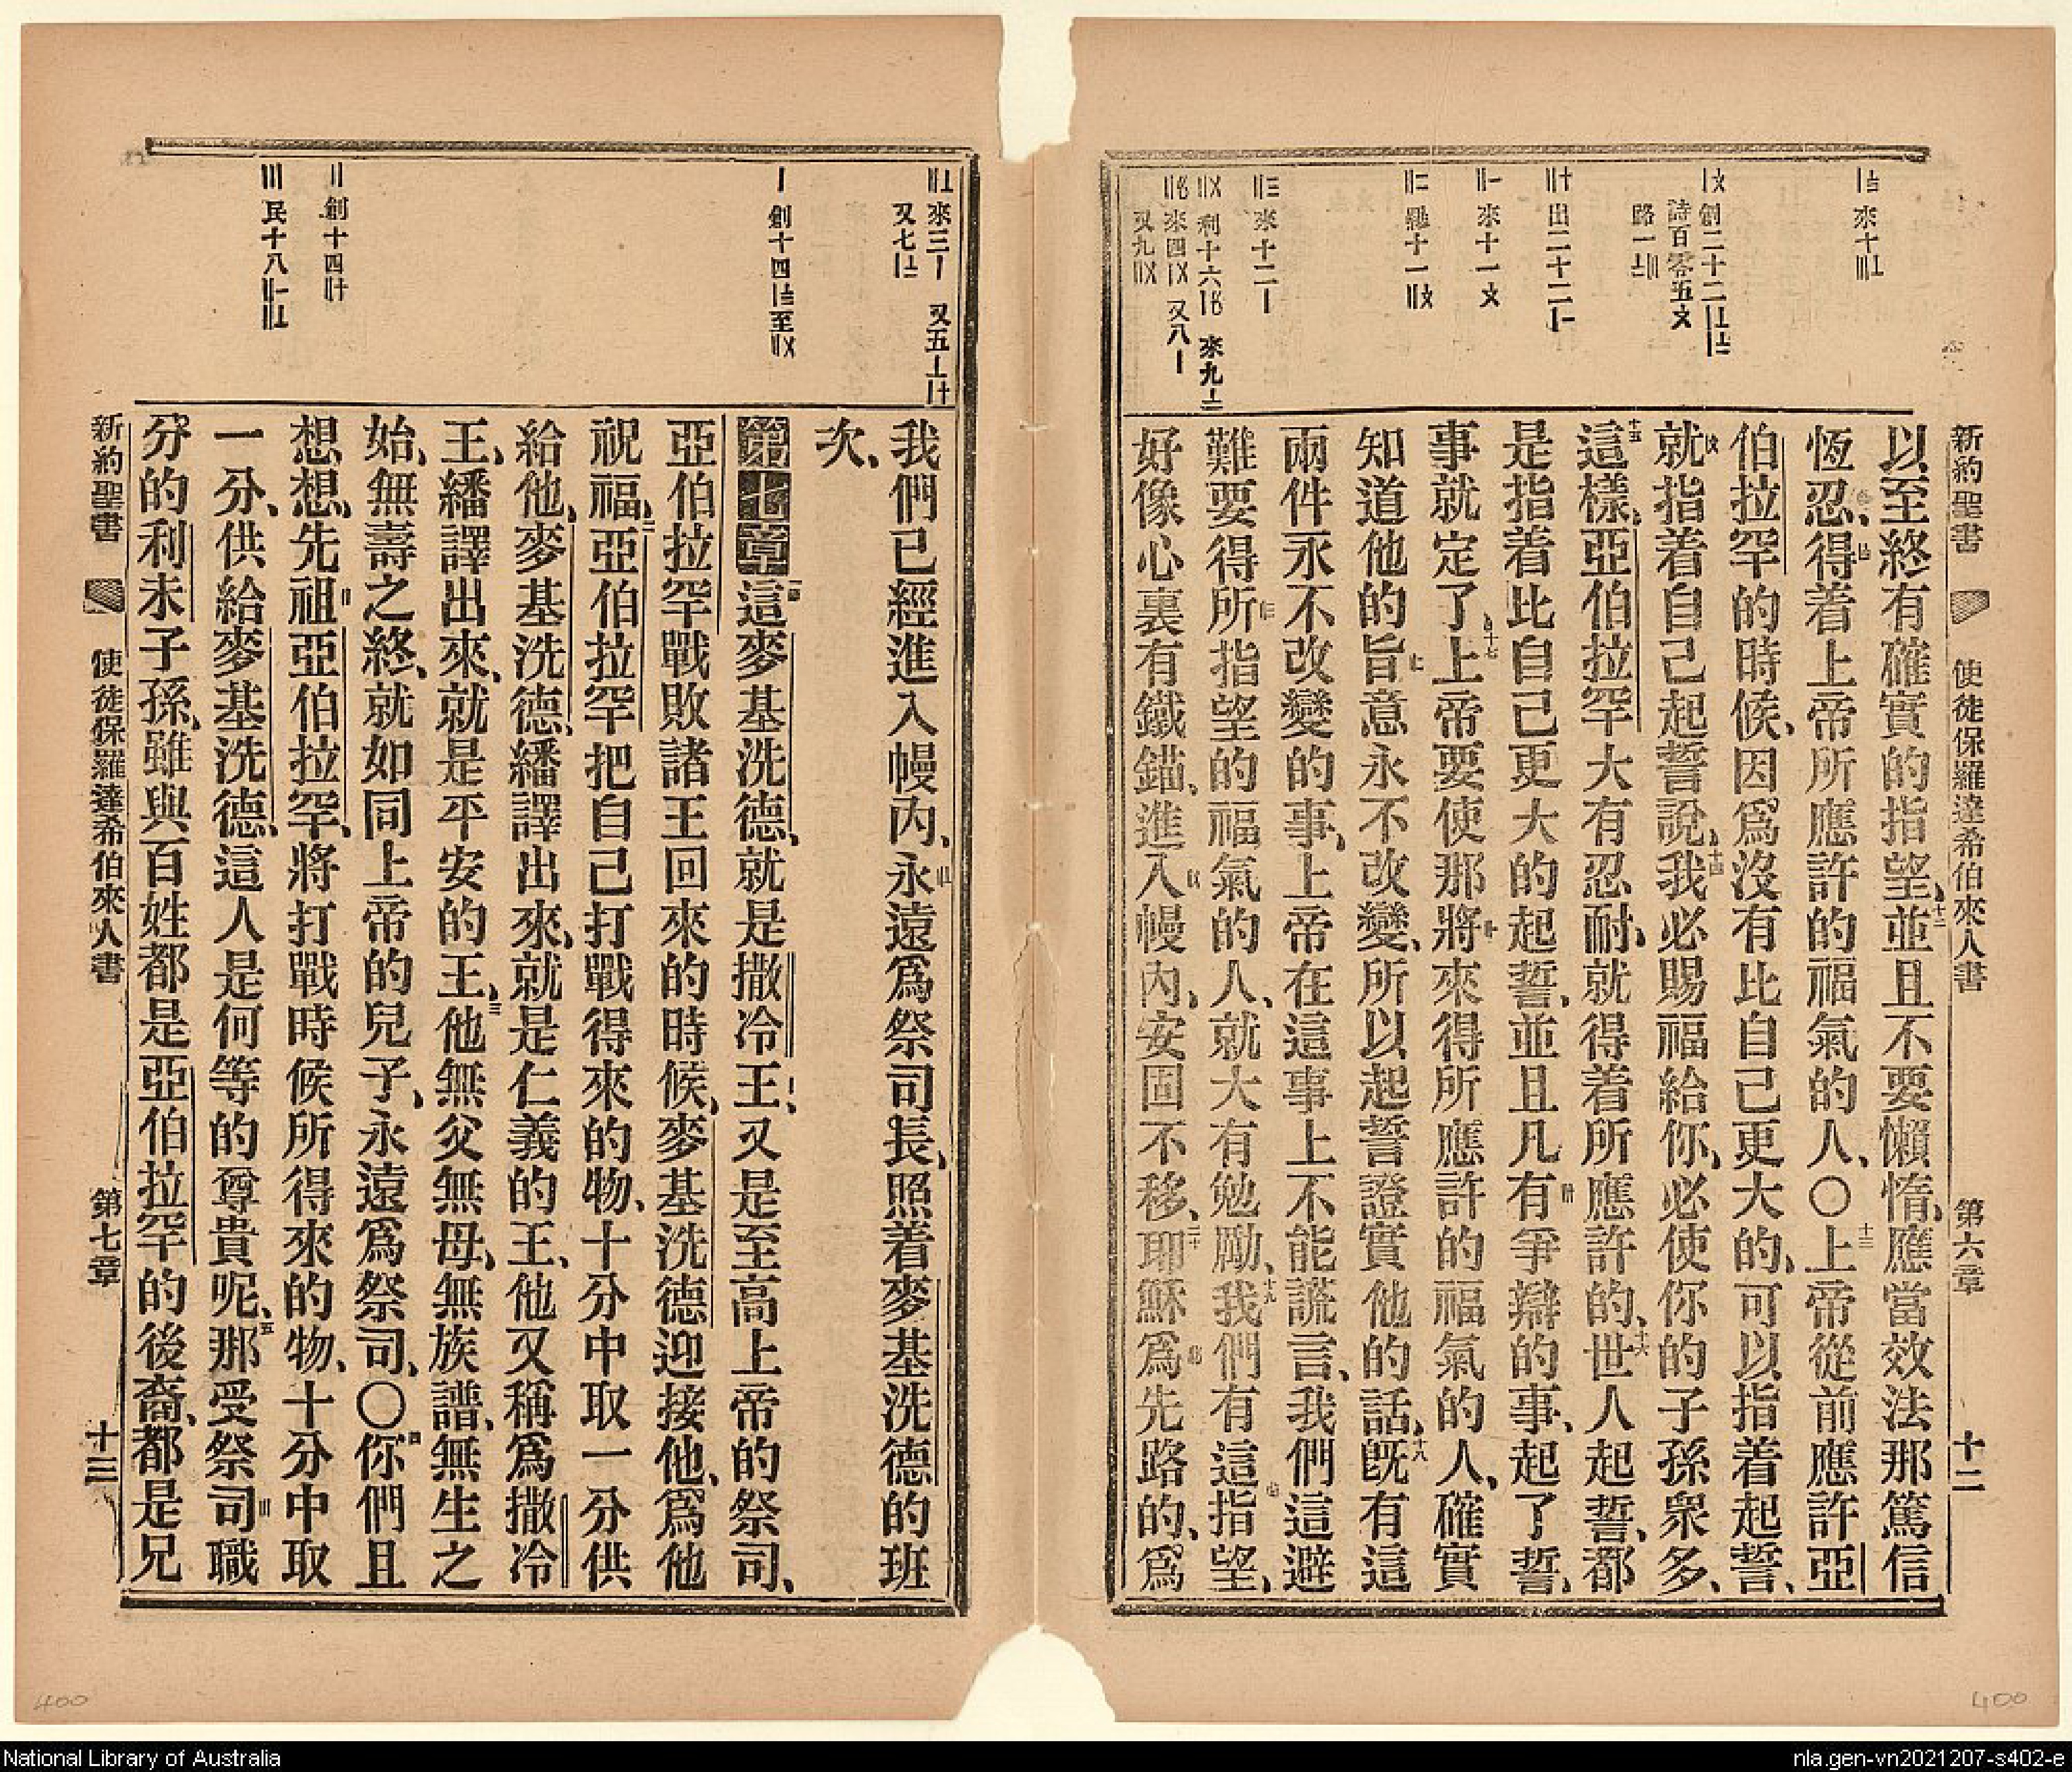 新約聖書 使徒保羅達希伯來人書 第六章 十二
以至終有確實的指望、十二並且不要懶惰、應當效法那篤信
恆忍、得着上帝所應許的福氣的人、〇十三上帝從前應許亞
伯拉罕的時候、因爲沒有比自己更大的、可以指着起誓、
就指着自己起誓說、十四我必賜福給你、必使你的子孫衆多、
十五這樣、亞伯拉罕大有忍耐、就得着所應許的、十六世人起誓、都
是指着比自己更大的起誓、並且凡有爭辯的事、起了誓、
事就定了、十七上帝要使那將來得所應許的福氣的人、確實
知道他的旨意永不改變、所以起誓證實他的話、十八旣有這
兩件永不改變的事、上帝在這事上不能謊言、我們這避
難要得所指望的福氣的人、就大有勉勵、十九我們有這指望、
好像心裏有鐵錨、進入幔內、安固不移、二十耶穌爲先路的、爲
來十〣〦
創二十二〡〦〧
詩百零五〤
路一〧〣
出二十二〡〡
來十一〤
羅十一〢〤
來十二〡
利十六 來九〧
來四〡〤 又八〡
又九〢〤
我們已經進入幔內、永遠爲祭司長、照着麥基洗德的班
次、
第七章 一這麥基洗德、就是撒冷王、又是至高上帝的祭司、
亞伯拉罕戰敗諸王回來的時候、麥基洗德迎接他、爲他
祝福、二亞伯拉罕把自己打戰得來的物、十分中取一分供
給他、麥基洗德、繙譯出來、就是仁義的王、他又稱爲撒冷
王、繙譯出來、就是平安的王、三他無父無母、無族譜、無生之
始、無壽之終、就如同上帝的兒子、永遠爲祭司、〇四你們且
想想、先祖亞伯拉罕、將打戰時候所得來的物、十分中取
一分、供給麥基洗德、這人是何等的尊貴呢、五那受祭司職
分的利未子孫、雖與百姓都是亞伯拉罕的後裔、都是兄
來三〡 又五〦〸
又七〧
創十四〡〨至〢〤
創十四〢〸
民十八〢〡〢〦
新約聖書 使徒保羅達希伯來人書 第七章 十三
400
400
National Library of Australia
nla.gen-vn2021207-s402-e